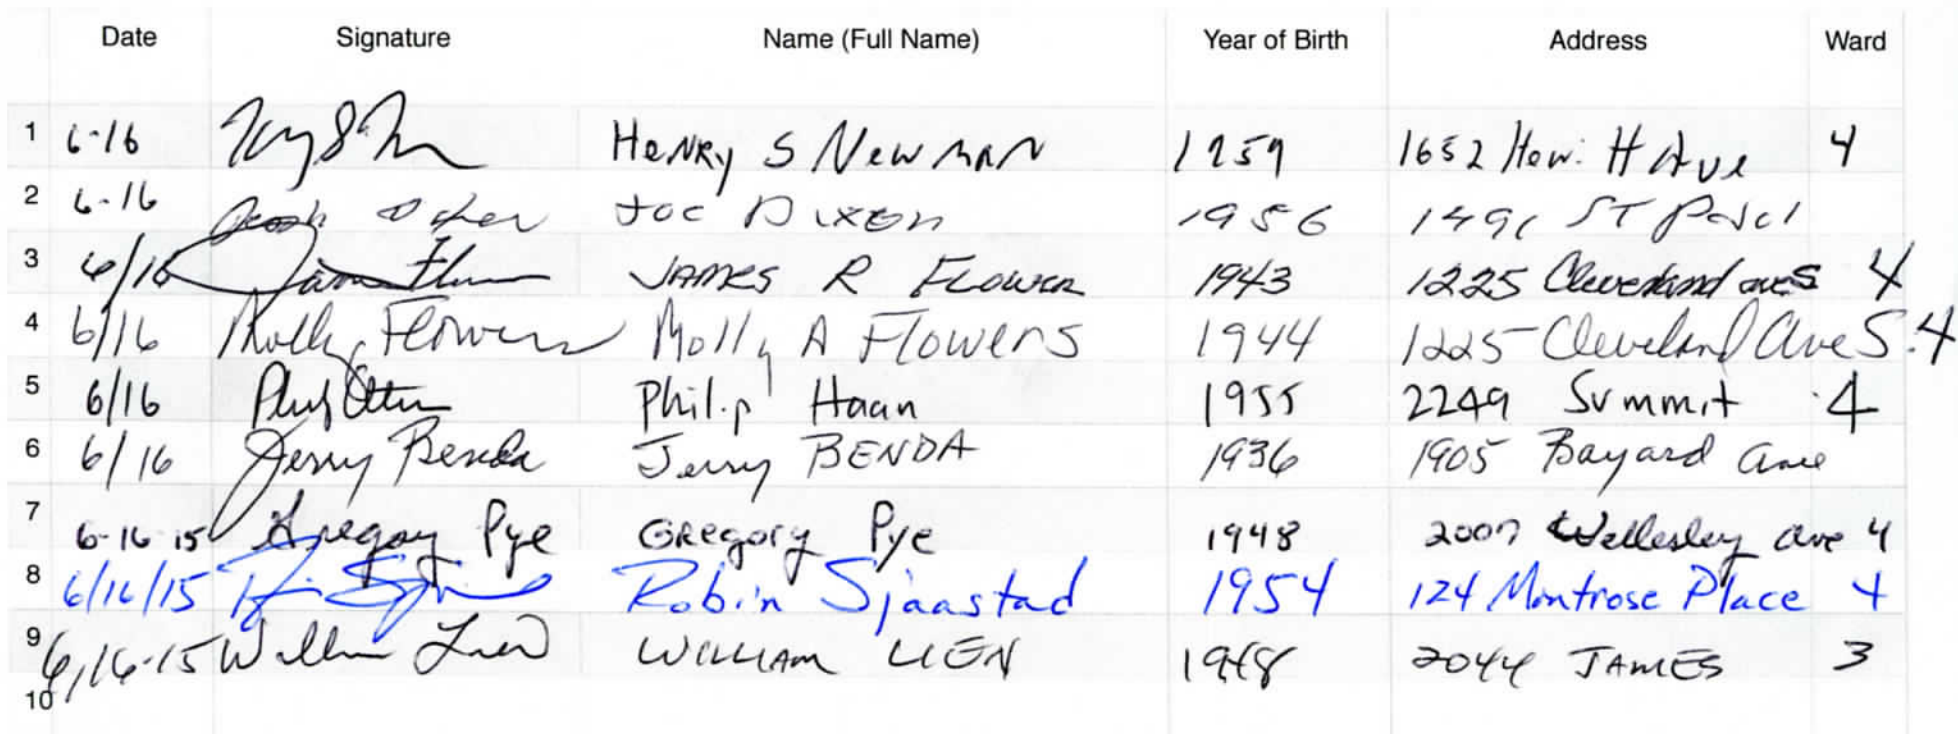 Date Signature Name (Full Name) Year of Birth Address Ward
1 6-16 Henry S Newman 1959 1652 Ave 4
2 6-16 Joe Dixon 1956 1491 ST Paul
3 6/16 James JAMES R FLOWER 1943 1225 Cleveland ave S 4
4 6/16 Molly Flowers Molly A Flowers 1944 1225 Cleveland Ave S. 4
5 6/16 Philip Haan 1955 2249 Summit 4
6 6/16 Jerry Benda Jerry BENDA 1936 1905 Bayard ave
7 6-16-15 Gregory Pye Gregory Pye 1948 2007 Wellesley ave 4
8 6/16/15 Robin Sjaastad 1954 124 Montrose Place 4
9 6/16-15 William Lien WILLIAM LIEN 1948 2044 JAMES 3
10